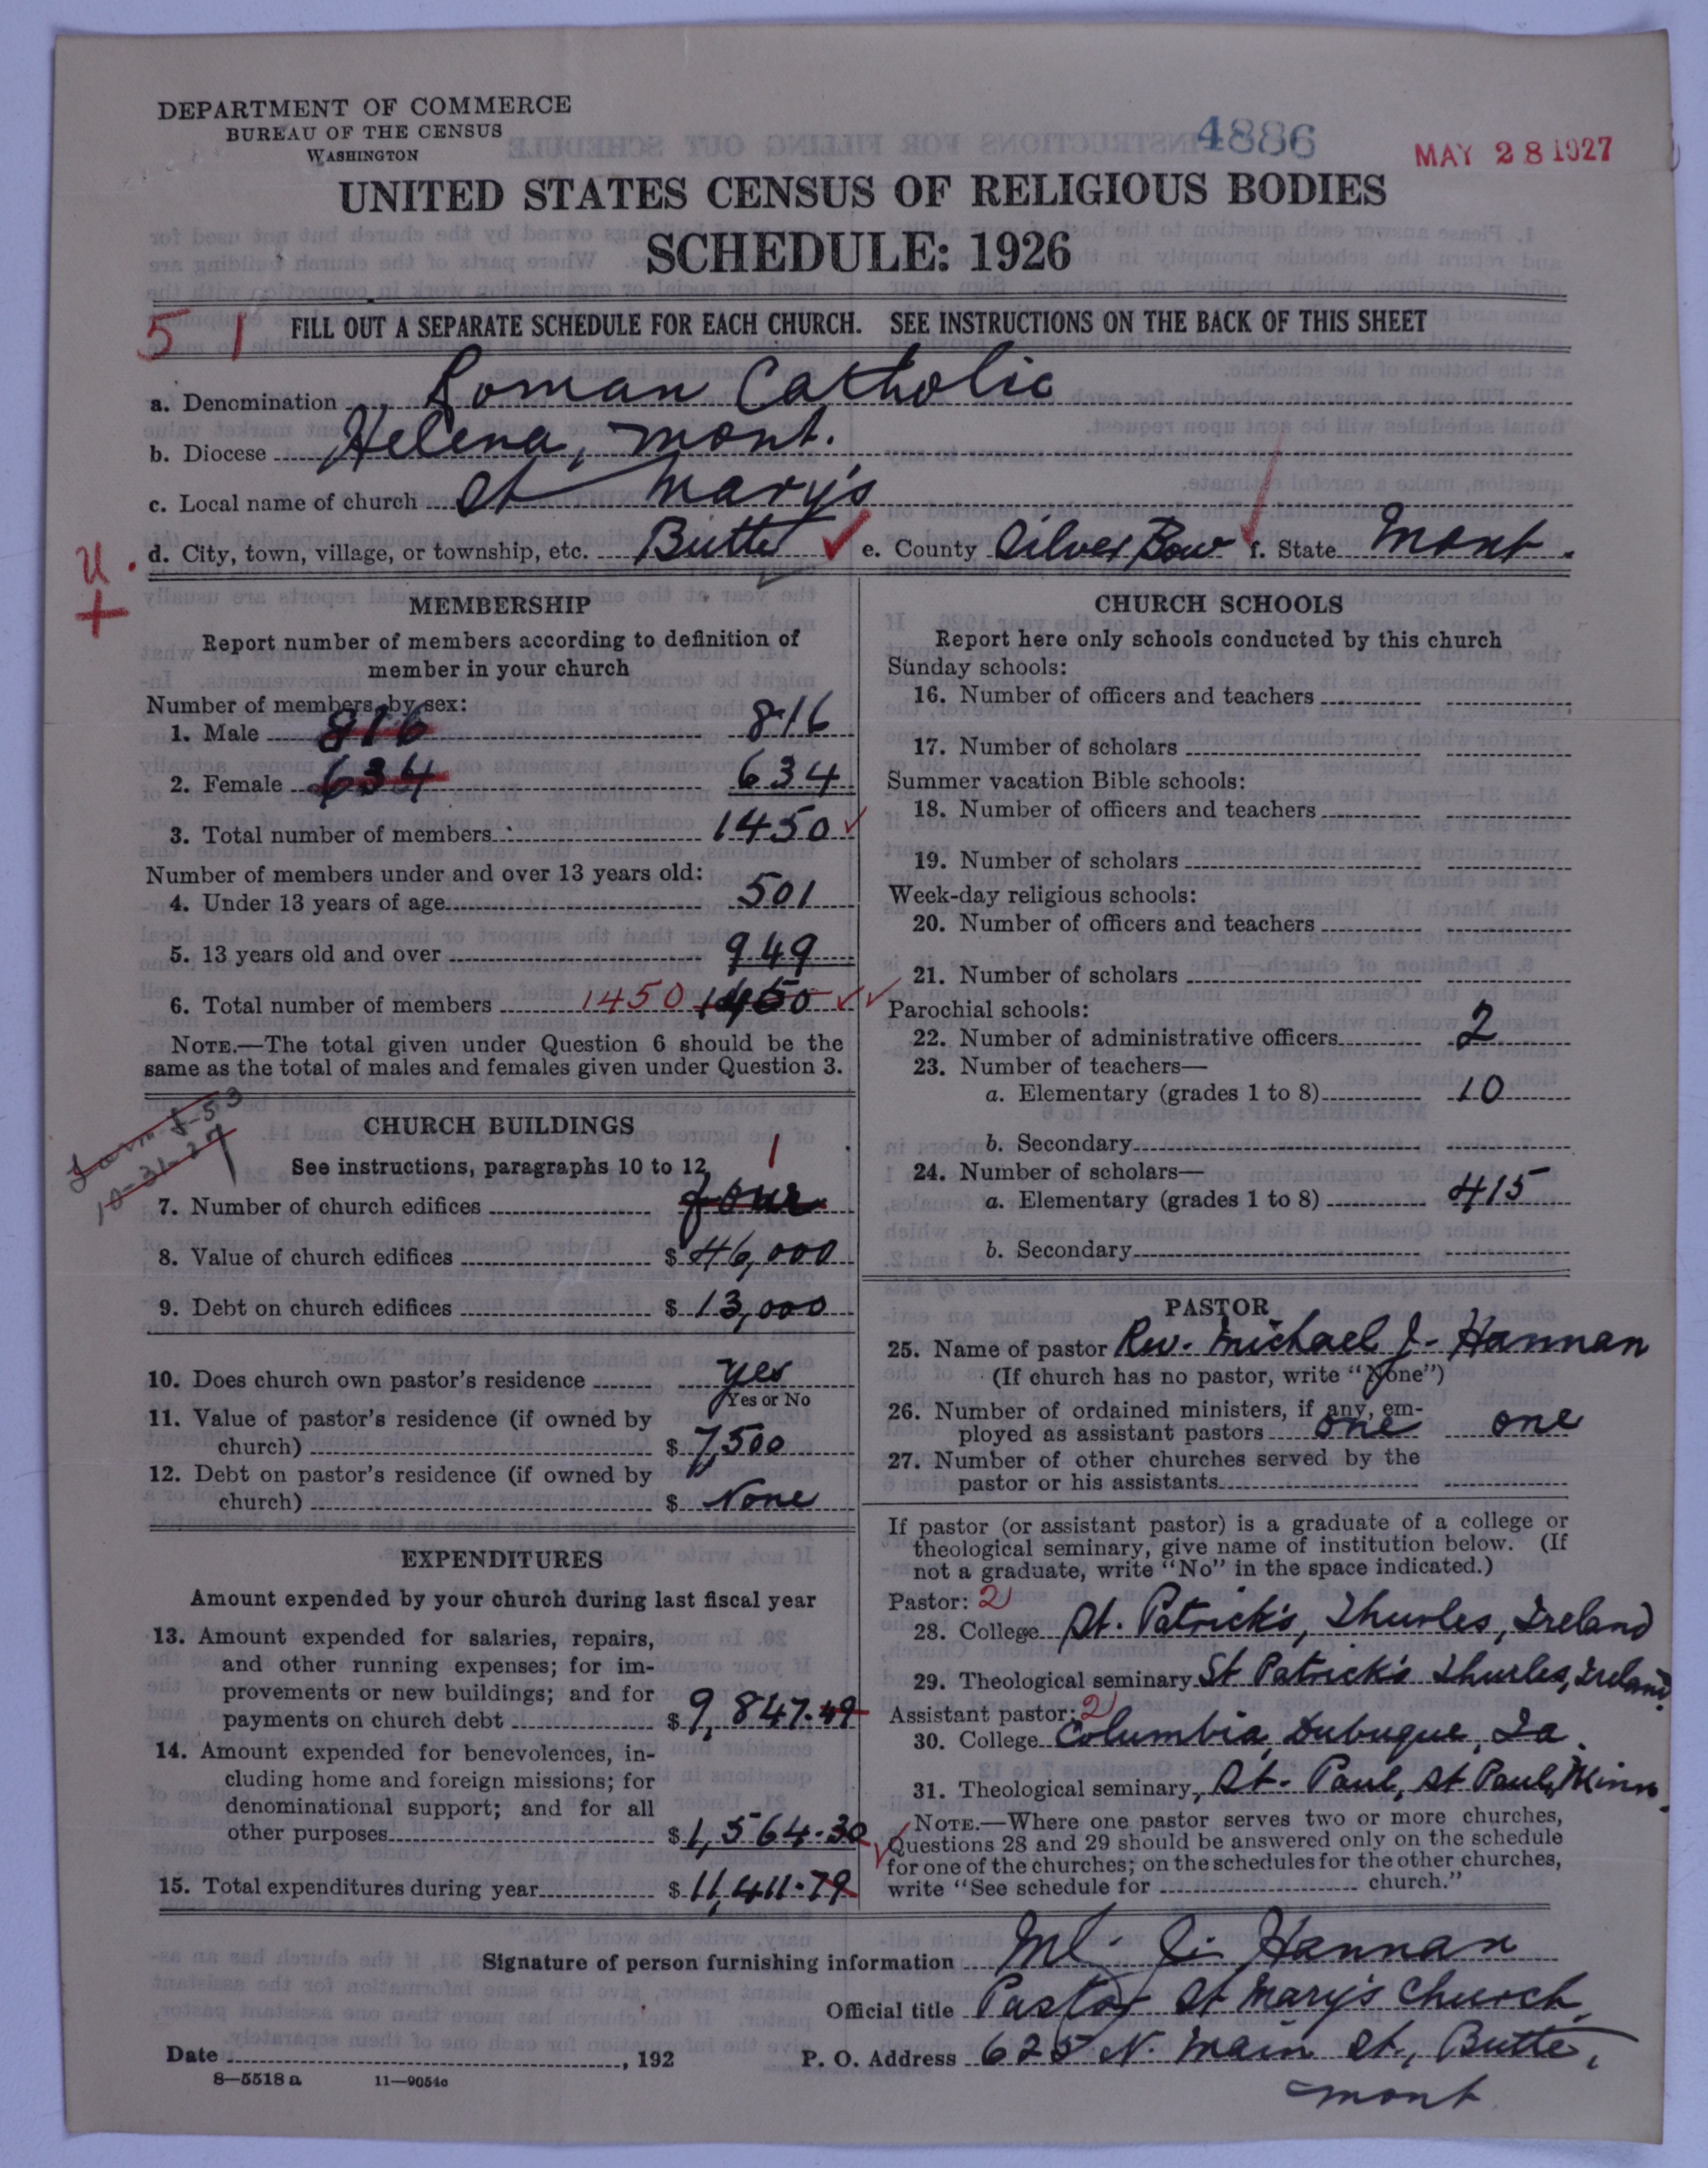 DEPARTMENT OF COMMERCE
BUREAU OF THE CENSUS
WASHINGTON
4886
MAY 28 1927
UNITED STATES CENSUS OF RELIGIOUS BODIES
SCHEDULE: 1926
5 1
FILL OUT A SEPARATE SCHEDULE FOR EACH CHURCH. SEE INSTRUCTIONS ON THE BACK OF THIS SHEET
a. Denomination Roman Catholic
b. Diocese Helena, Mont.
c. Local name of church St Mary's
d. City, town, village, or township, etc. Butte e. County Silver Bow f. State Mont.
U.
+
MEMBERSHIP
Report number of members according to definition of
member in your church
Number of members by sex:
1. Male 816 816
2. Female 634 634
3. Total number of members 1450
Number of members under and over 13 years old:
4. Under 13 years of age 501
5. 13 years old and over 949
6. Total number of members 1450 1450
NOTE.—The total given under Question 6 should be the
same as the total of males and females given under Question 3.
10-31-27
CHURCH BUILDINGS
See instructions, paragraphs 10 to 12
1
7. Number of church edifices four
8. Value of church edifices $ 46,000
9. Debt on church edifices $ 13,000
10. Does church own pastor's residence yes
Yes or No
11. Value of pastor's residence (if owned by
church) $ 7,500
12. Debt on pastor's residence (if owned by
church) $ None
EXPENDITURES
Amount expended by your church during last fiscal year
13. Amount expended for salaries, repairs,
and other running expenses; for im-
provements or new buildings; and for
payments on church debt $ 9,847.49
14. Amount expended for benevolences, in-
cluding home and foreign missions; for
denominational support; and for all
other purposes $ 1,564.30
15. Total expenditures during year $ 11,411.79
CHURCH SCHOOLS
Report here only schools conducted by this church
Sunday schools:
16. Number of officers and teachers
17. Number of scholars
Summer vacation Bible schools:
18. Number of officers and teachers
19. Number of scholars
Week-day religious schools:
20. Number of officers and teachers
21. Number of scholars
Parochial schools:
22. Number of administrative officers 2
23. Number of teachers—
a. Elementary (grades 1 to 8) 10
b. Secondary
24. Number of scholars—
a. Elementary (grades 1 to 8) 415
b. Secondary
PASTOR
25. Name of pastor Rev. Michael J. Hannan
(If church has no pastor, write "None")
26. Number of ordained ministers, if any, em-
ployed as assistant pastors one one
27. Number of other churches served by the
pastor or his assistants
If pastor (or assistant pastor) is a graduate of a college or
theological seminary, give name of institution below. (If
not a graduate, write "No" in the space indicated.)
Pastor: 2
28. College St. Patrick's, Thurles, Ireland
29. Theological seminary St Patrick's Thurles, Ireland
Assistant pastor: 2
30. College Columbia, Dubuque, Ia.
31. Theological seminary, St. Paul, St Paul, Minn.
NOTE.—Where one pastor serves two or more churches,
Questions 28 and 29 should be answered only on the schedule
for one of the churches; on the schedules for the other churches,
write "See schedule for church."
Signature of person furnishing information Ml. J. Hannan
Official title Pastor St Mary's Church
Date , 192 P. O. Address 625 N. Main St., Butte,
Mont
8—5518 a 11—9054c